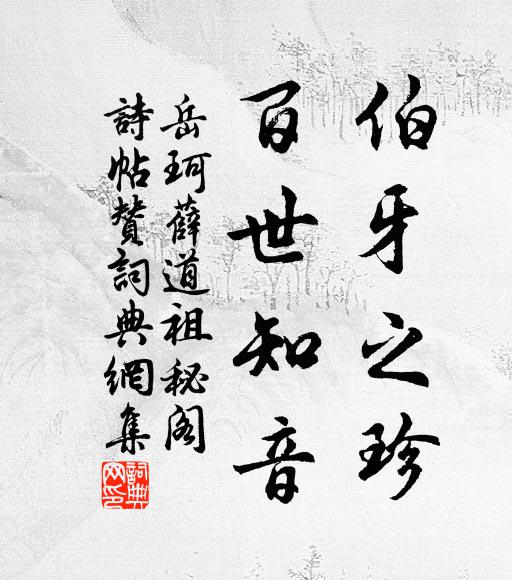 伯牙之珍
百世知音
岳珂薛道祖秘阁
詩帖贊詞典網集
詞典網印